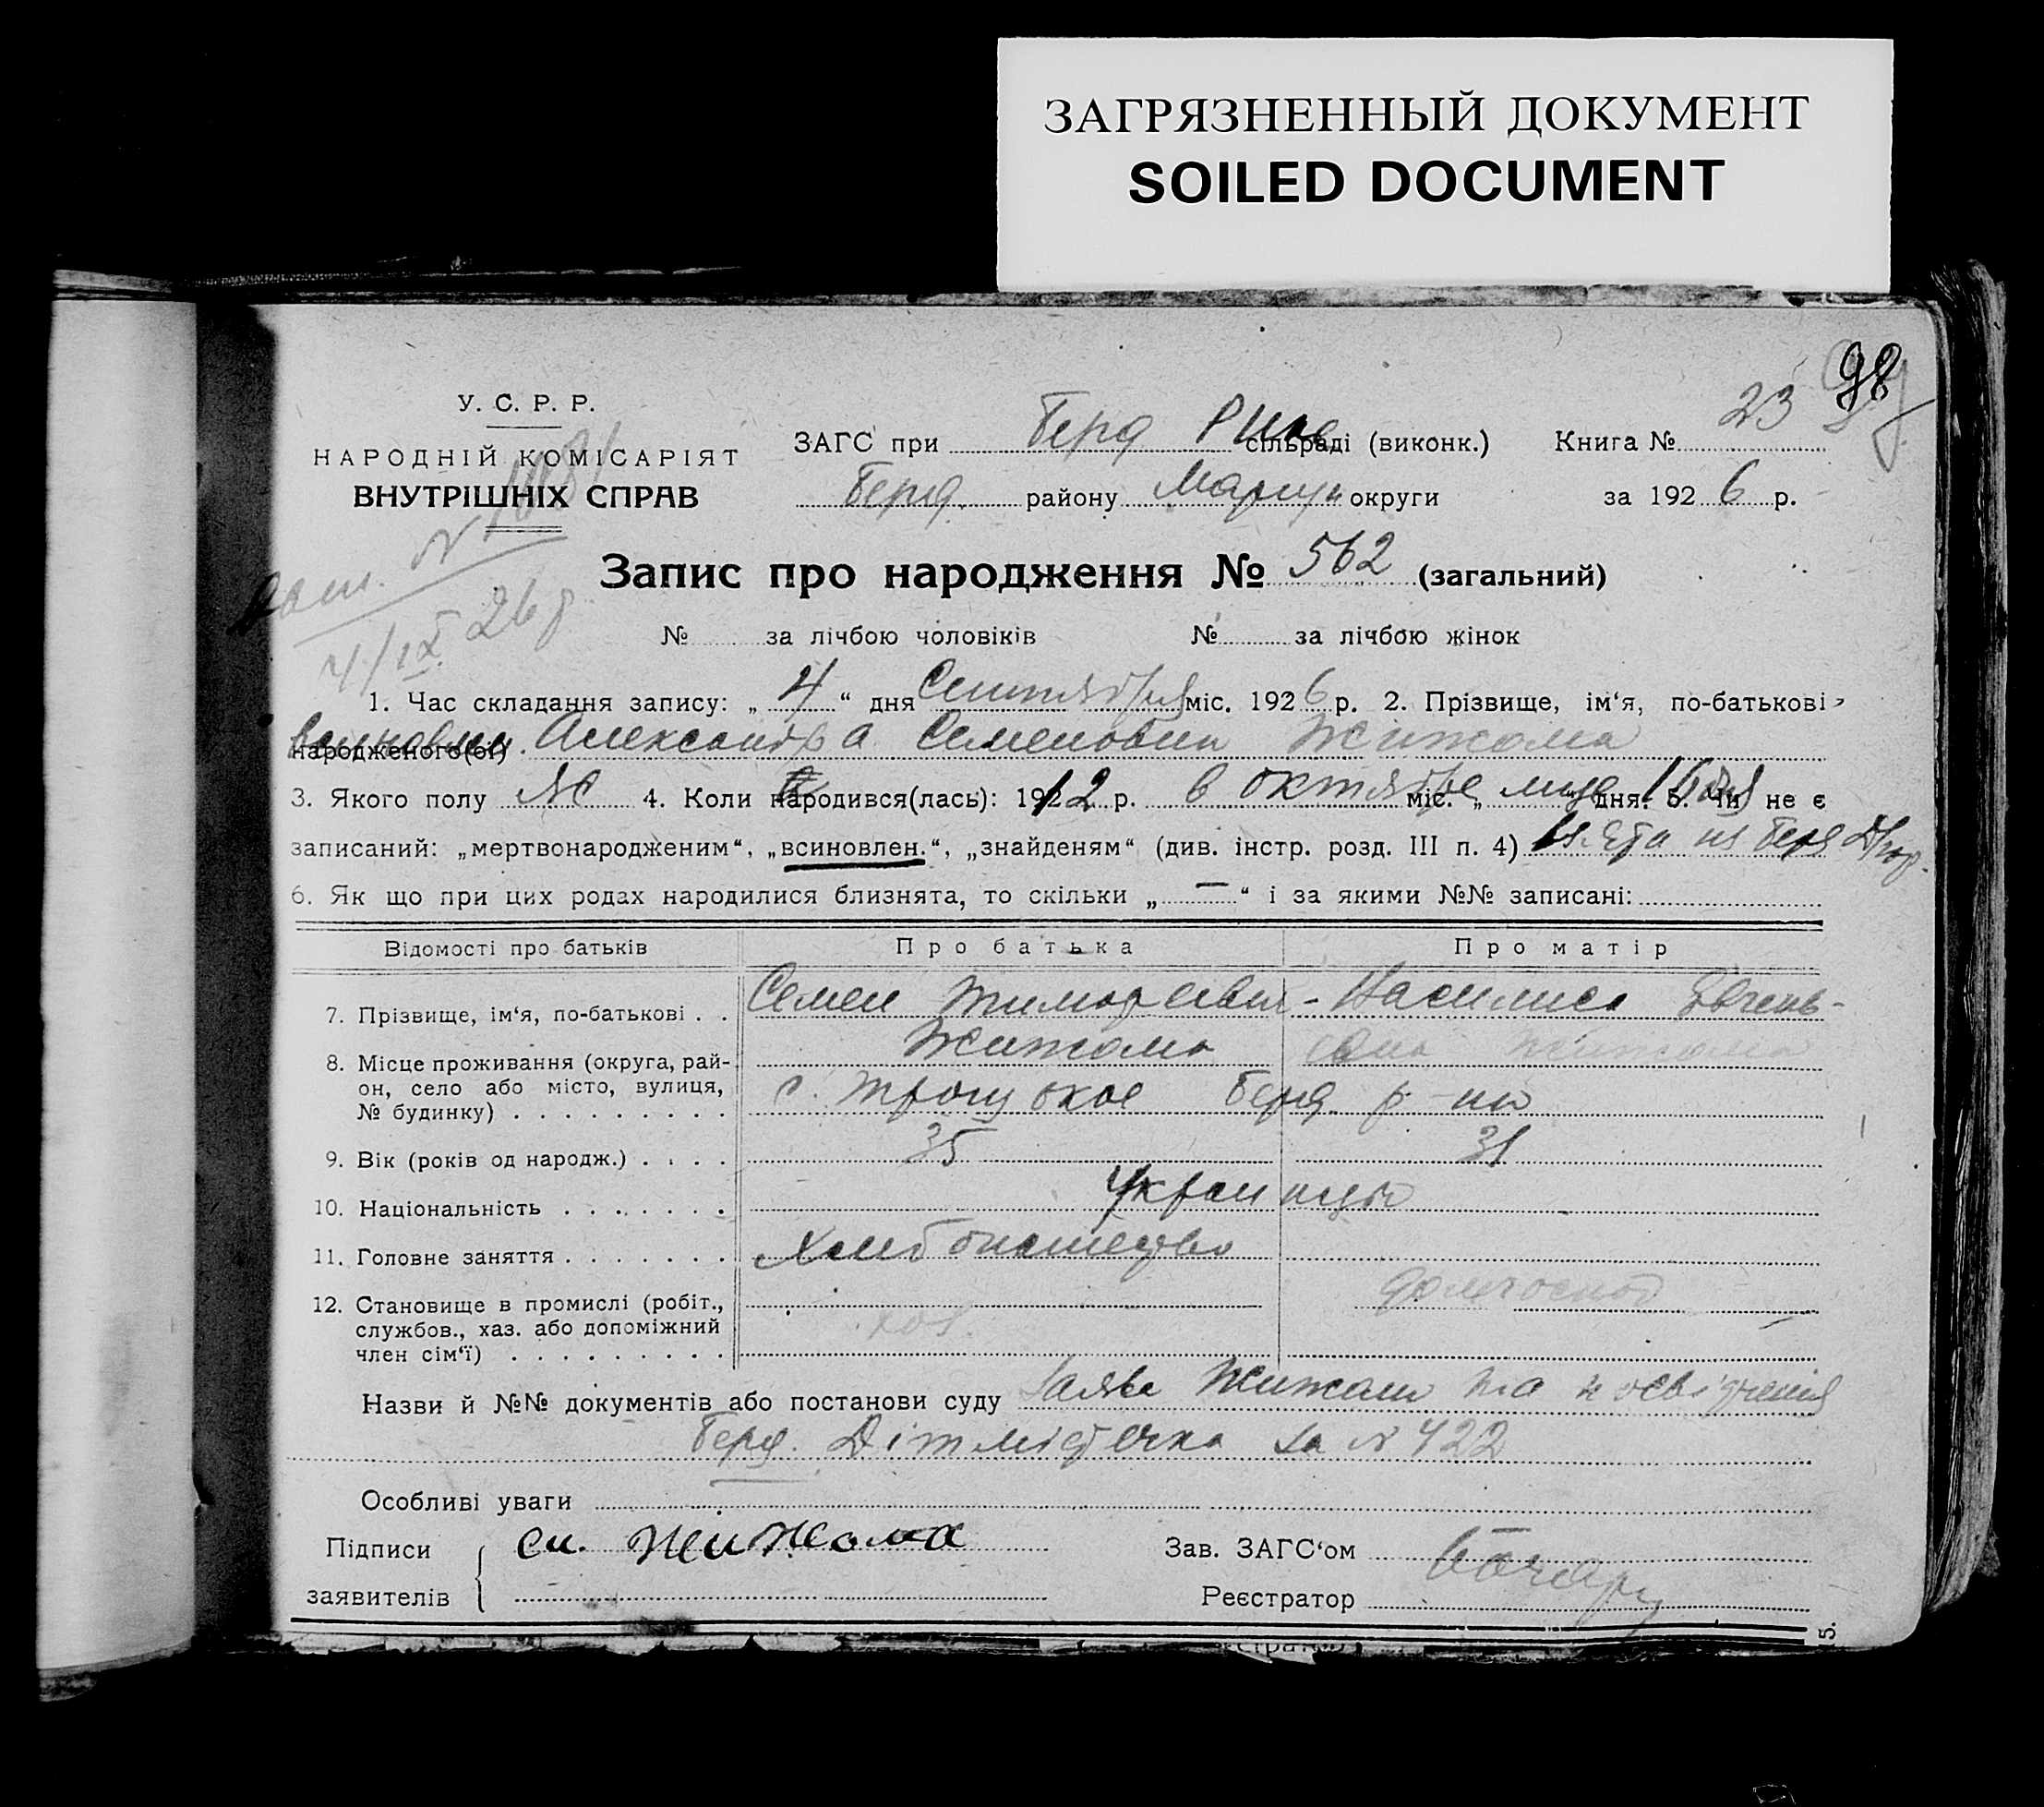 ЗАГРЯЗНЕННЫЙ ДОКУМЕНТ
SOILED DOCUMENT
98
У. С. Р. Р.
НАРОДНІЙ КОМІСАРІЯТ
ВНУТРІШНІХ СПРАВ
ЗАГС при Берд сільраді (виконк.) Книга № 23
Берд. району Мариуп округи за 1926 р.
Запис про народження № 562 (загальний)
4/IX 26
№ за лічбою чоловіків № за лічбою жінок
1. Час складання запису: „ 4 “ дня Сентября міс. 1926 р. 2. Прізвище, ім‘я, по-батькові
народженого(ої) Александра Семенович Жижома
3. Якого полу М 4. Коли народився(лась): 1912 р. в октябре міс. „ дня. 5. Чи не є
записаний: „мертвонародженим“, „всиновлен.“, „знайденям“ (див. інстр. розд. III п. 4) из Берд
6. Як що при цих родах народилися близнята, то скільки „ — “ і за якими №№ записані:
Відомості про батьків Про батька Про матір
7. Прізвище, ім‘я, по-батькові . . Семен Тимофеевич Василиса
Жижома Жижома
8. Місце проживання (округа, рай-
он, село або місто, вулиця,
№ будинку) . . . . . . . . . с. Троцкое Берд. р-на
9. Вік (років од народж.) . . . . 35 31
10. Національність . . . . . . . Украинцы
11. Головне заняття . . . . . . . Хлебопашество
12. Становище в промислі (робіт.,
службов., хаз. або допоміжний
член сім‘ї) . . . . . . . . . хоз. домохоз
Назви й №№ документів або постанови суду Заява Жижоми та посвідчення
Берд. Дітмістечка за № 422
Особливі уваги
Підписи
заявителів
Жижома
Зав. ЗАГС‘ом
Реєстратор
5.